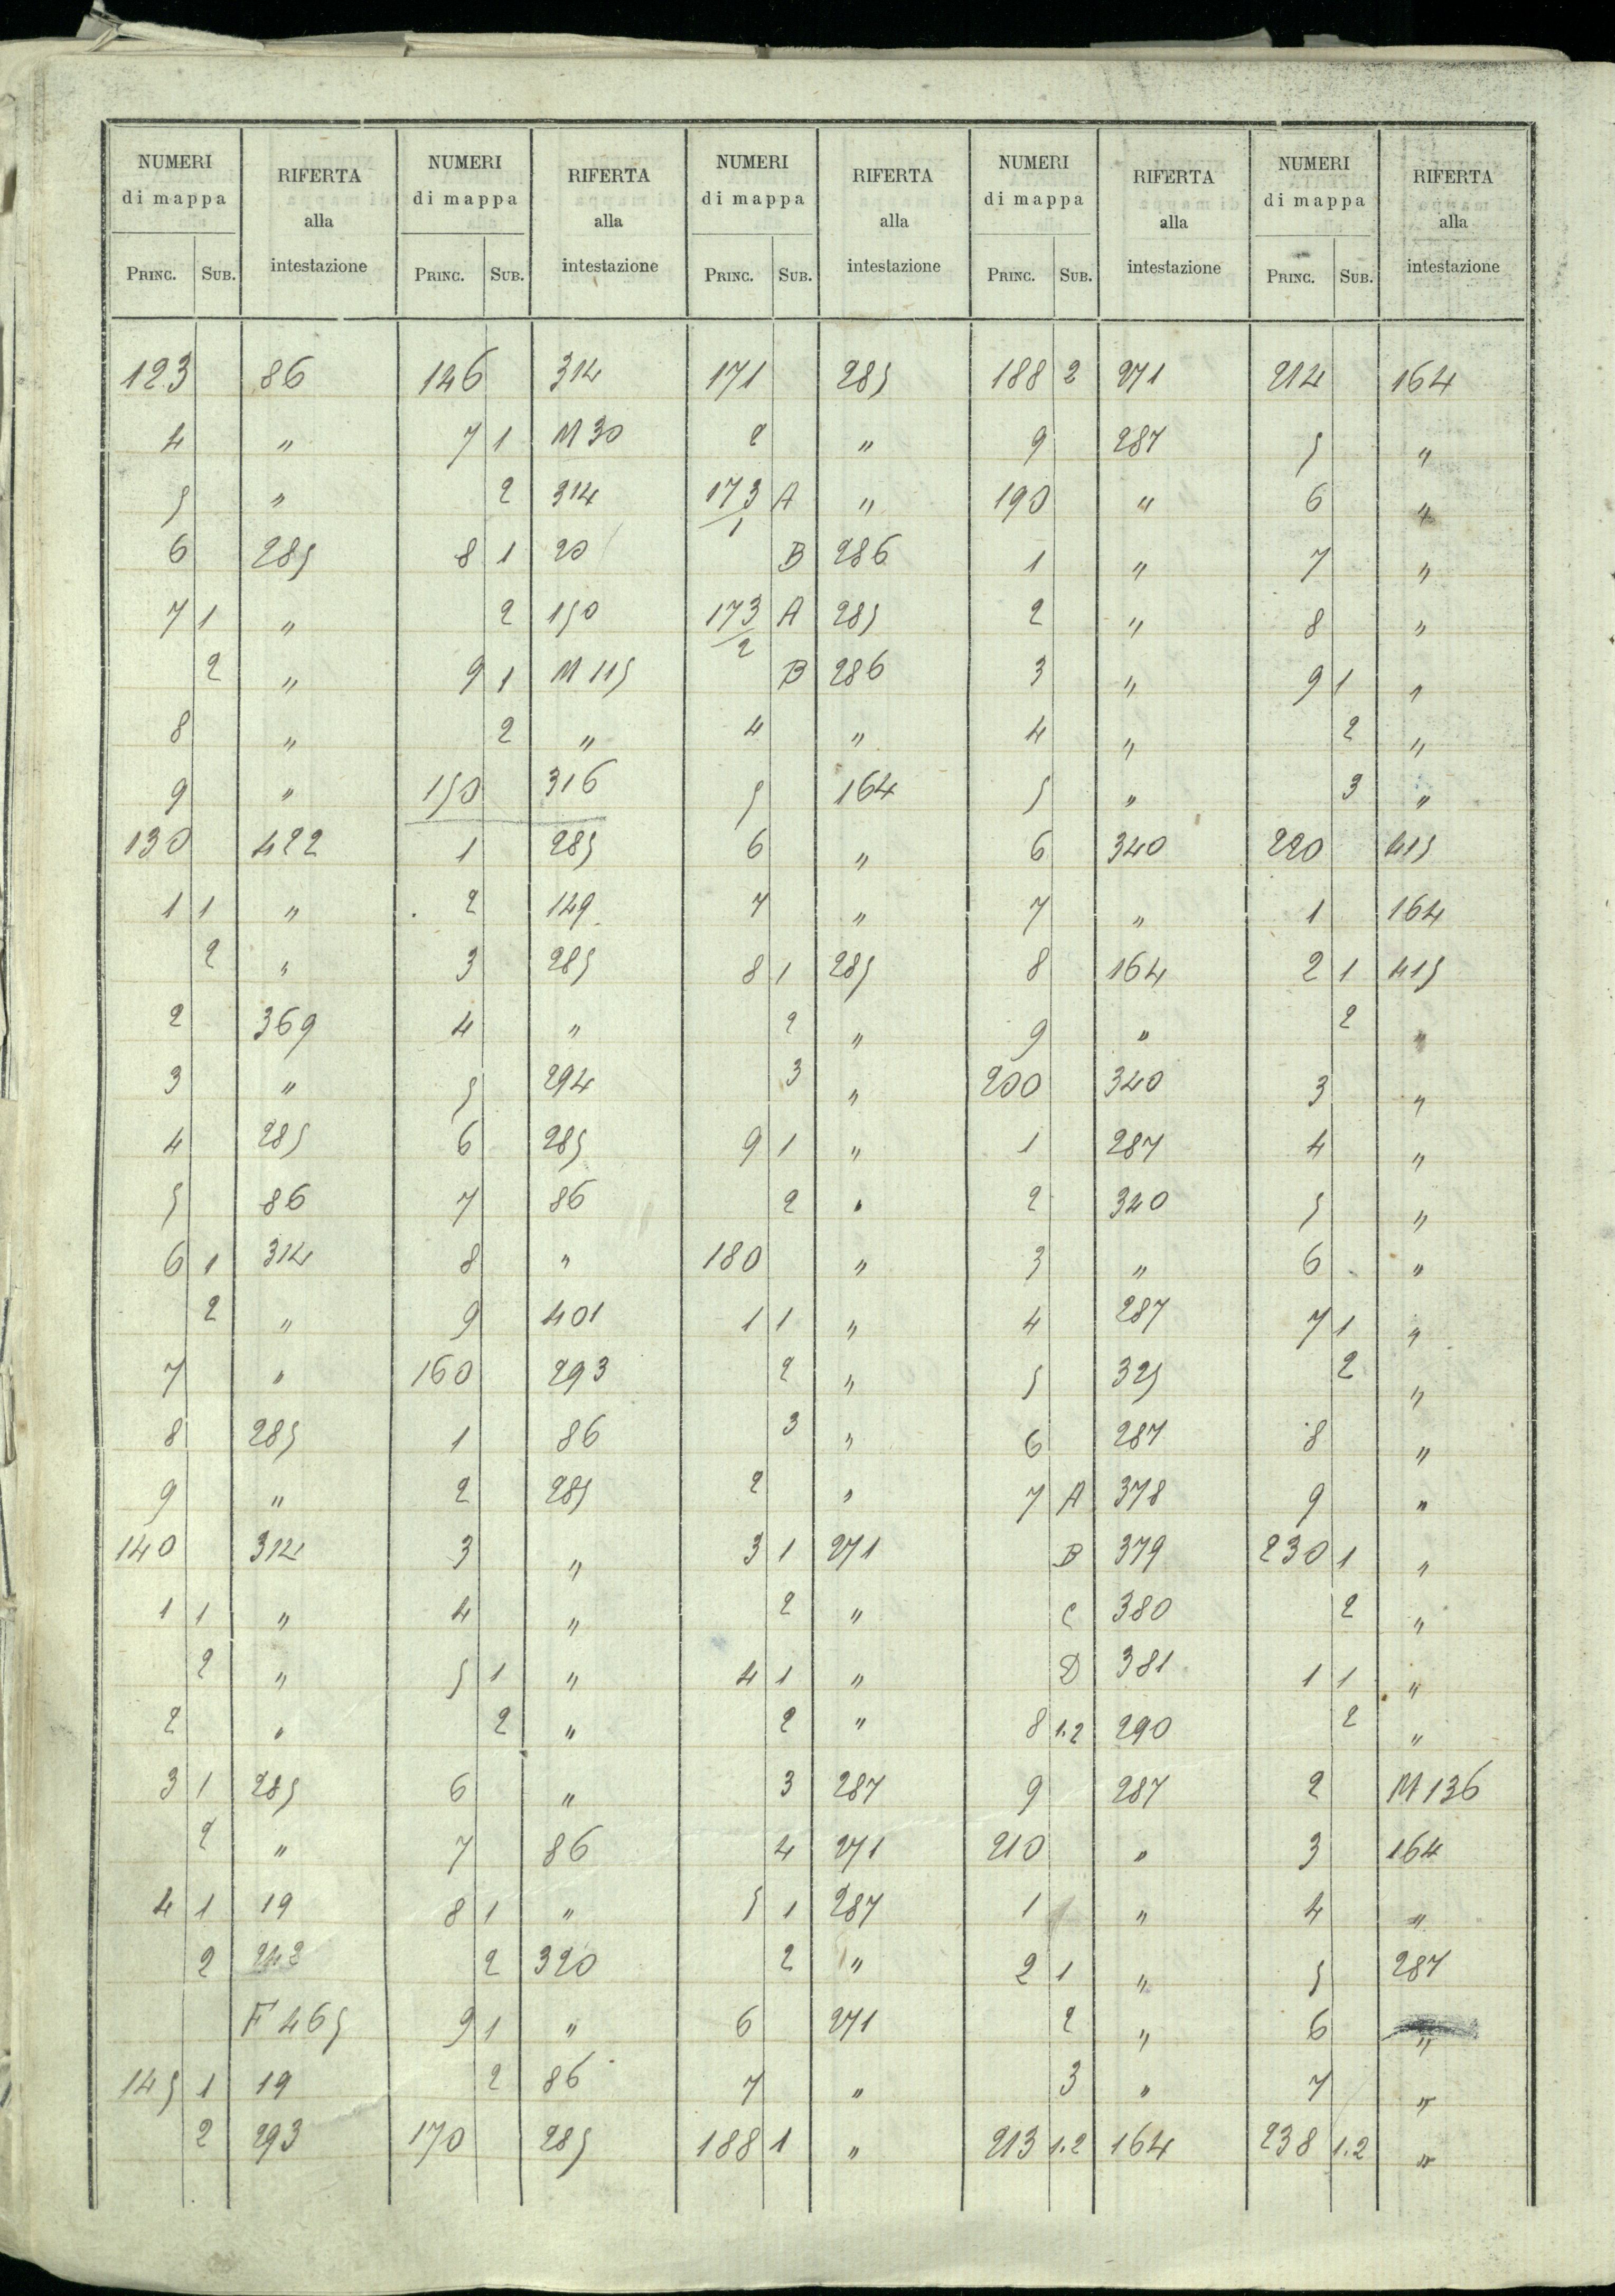 NUMERI di mappa | RIFERTA alla intestazione | NUMERI di mappa | RIFERTA alla intestazione | NUMERI di mappa | RIFERTA alla intestazione | NUMERI di mappa | RIFERTA alla intestazione | NUMERI di mappa | RIFERTA alla intestazione
PRINC. | SUB. | | PRINC. | SUB. | | PRINC. | SUB. | | PRINC. | SUB. | | PRINC. | SUB. |
123 | | 86 | 146 | | 314 | 171 | | 285 | 188 | 2 | 271 | 214 | | 164
4 | | " | 7 | 1 | M 30 | 2 | | " | 9 | | 287 | 5 | | "
5 | | " | | 2 | 314 | 173/1 | A | " | 190 | | " | 6 | | "
6 | | 285 | 8 | 1 | 20 | | B | 286 | 1 | | " | 7 | | "
7 | 1 | " | | 2 | 150 | 173/2 | A | 285 | 2 | | " | 8 | | "
| 2 | " | 9 | 1 | M 115 | | B | 286 | 3 | | " | 9 | 1 | "
8 | | " | | 2 | " | 4 | | " | 4 | | " | | 2 | "
9 | | " | 150 | | 316 | 5 | | 164 | 5 | | " | | 3 | "
130 | | 422 | 1 | | 285 | 6 | | " | 6 | | 340 | 220 | | 415
1 | 1 | " | 2 | | 149 | 7 | | " | 7 | | " | 1 | | 164
| 2 | " | 3 | | 285 | 8 | 1 | 285 | 8 | | 164 | 2 | 1 | 415
2 | | 369 | 4 | | " | | 2 | " | 9 | | " | | 2 | "
3 | | " | 5 | | 294 | | 3 | " | 200 | | 340 | 3 | | "
4 | | 285 | 6 | | 285 | 9 | 1 | " | 1 | | 287 | 4 | | "
5 | | 86 | 7 | | 86 | | 2 | " | 2 | | 340 | 5 | | "
6 | 1 | 314 | 8 | | " | 180 | | " | 3 | | " | 6 | | "
| 2 | " | 9 | | 401 | 1 | 1 | " | 4 | | 287 | 7 | 1 | "
7 | | " | 160 | | 293 | | 2 | " | 5 | | 325 | | 2 | "
8 | | 285 | 1 | | 86 | | 3 | " | 6 | | 287 | 8 | | "
9 | | " | 2 | | 285 | 2 | | " | 7 | A | 378 | 9 | | "
140 | | 314 | 3 | | " | 3 | 1 | 271 | | B | 379 | 230 | 1 | "
1 | 1 | " | 4 | | " | | 2 | " | | C | 380 | | 2 | "
| 2 | " | 5 | 1 | " | 4 | 1 | " | | D | 381 | 1 | 1 | "
2 | | " | | 2 | " | | 2 | " | 8 | 1.2 | 290 | | 2 | "
3 | 1 | 285 | 6 | | " | | 3 | 287 | 9 | | 287 | 2 | | M 136
| 2 | " | 7 | | 86 | | 4 | 271 | 210 | | " | 3 | | 164
4 | 1 | 19 | 8 | 1 | " | 5 | 1 | 287 | 1 | | " | 4 | | "
| 2 | 243 | | 2 | 320 | | 2 | " | 2 | 1 | " | 5 | | 287
| | F 465 | 9 | 1 | " | 6 | | 271 | | 2 | " | 6 | | "
145 | 1 | 19 | | 2 | 86 | 7 | | " | | 3 | " | 7 | | "
| 2 | 293 | 170 | | 285 | 188 | 1 | " | 213 | 1.2 | 164 | 238 | 1.2 | "